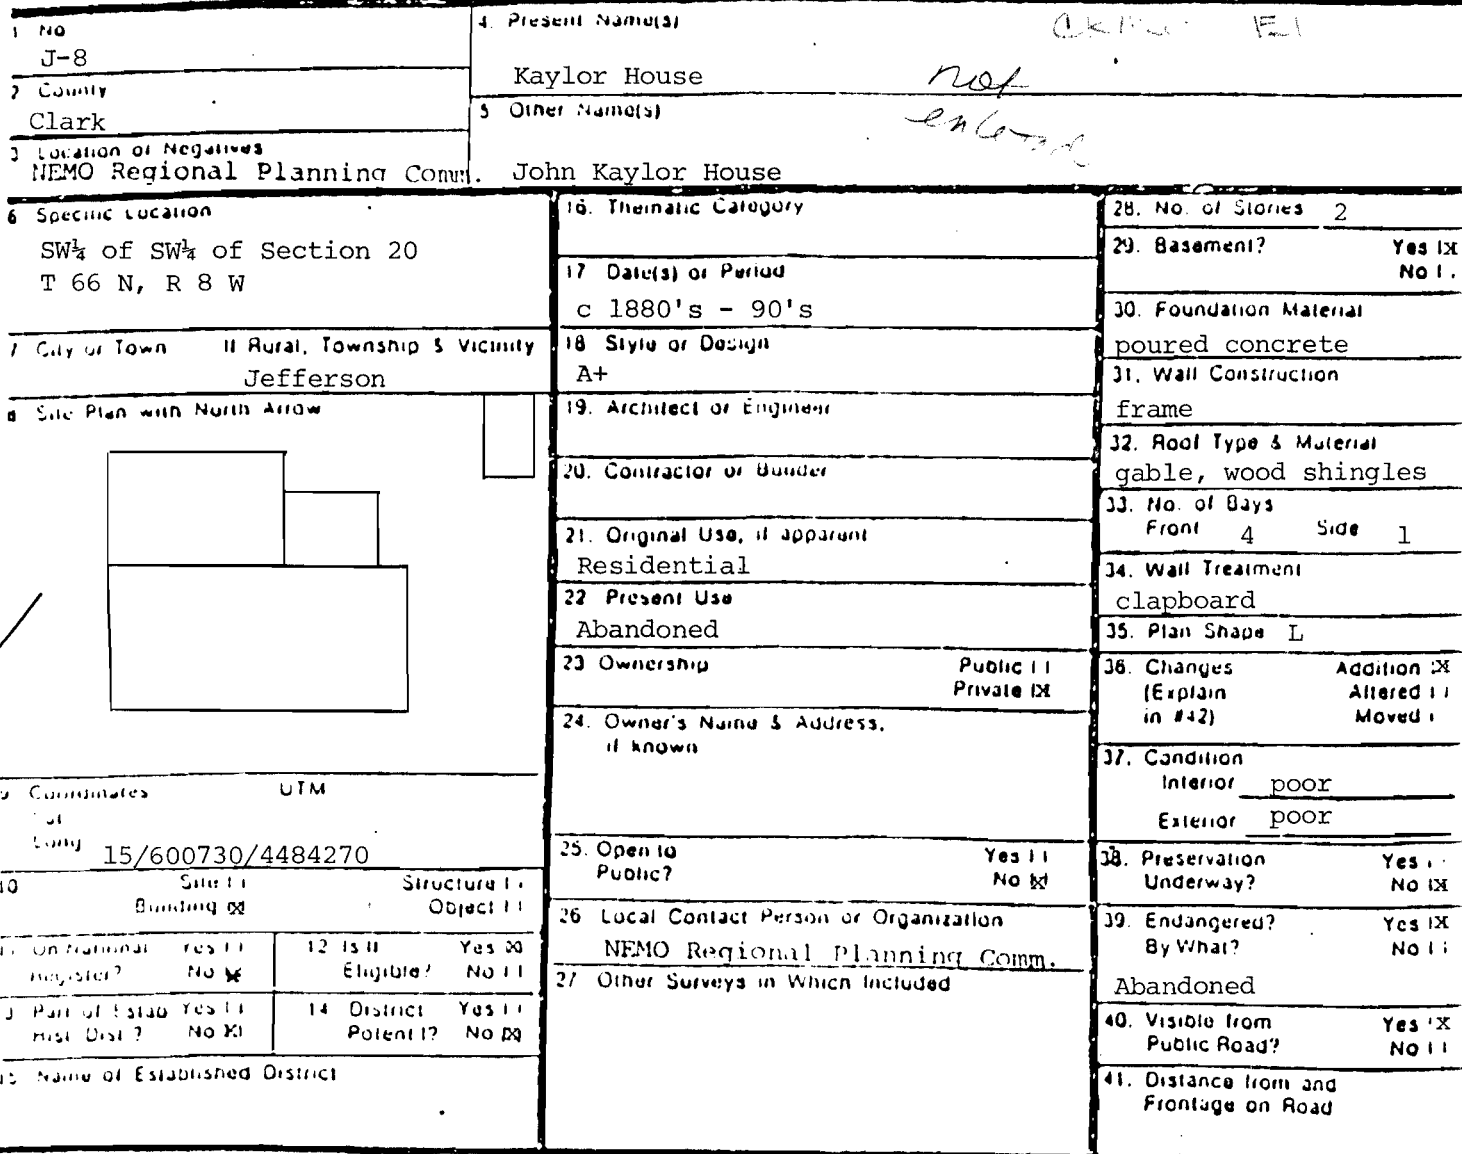 1 No
J-8
2 County
Clark
3 Location of Negatives
NEMO Regional Planning Comm.
4. Present Name(s)
Kaylor House
not
5 Other Name(s)
John Kaylor House
6 Specific Location
SW¼ of SW¼ of Section 20
T 66 N, R 8 W
7 City or Town If Rural, Township & Vicinity
Jefferson
8 Site Plan with North Arrow
9 Coordinates UTM
Lat
Long
15/600730/4484270
10 Site [ ] Structure [ ]
Building [X] Object [ ]
11 On National Yes [ ]
Register? No [X]
12 Is It Yes [X]
Eligible? No [ ]
13 Part of Estab Yes [ ]
Hist. Dist.? No [X]
14 District Yes [ ]
Potent'l? No [X]
15 Name of Established District
16. Thematic Category
17 Date(s) or Period
c 1880's - 90's
18 Style or Design
A+
19. Architect or Engineer
20. Contractor or Builder
21. Original Use, if apparent
Residential
22 Present Use
Abandoned
23 Ownership Public [ ]
Private [X]
24. Owner's Name & Address,
if known
25. Open to Yes [ ]
Public? No [X]
26 Local Contact Person or Organization
NEMO Regional Planning Comm.
27 Other Surveys in Which Included
28. No. of Stories 2
29. Basement? Yes [X]
No [ ]
30. Foundation Material
poured concrete
31. Wall Construction
frame
32. Roof Type & Material
gable, wood shingles
33. No. of Bays
Front 4 Side 1
34. Wall Treatment
clapboard
35. Plan Shape L
36. Changes Addition [X]
(Explain Altered [ ]
in #42) Moved [ ]
37. Condition
Interior poor
Exterior poor
38. Preservation Yes [ ]
Underway? No [X]
39. Endangered? Yes [X]
By What? No [ ]
Abandoned
40. Visible from Yes [X]
Public Road? No [ ]
41. Distance from and
Frontage on Road